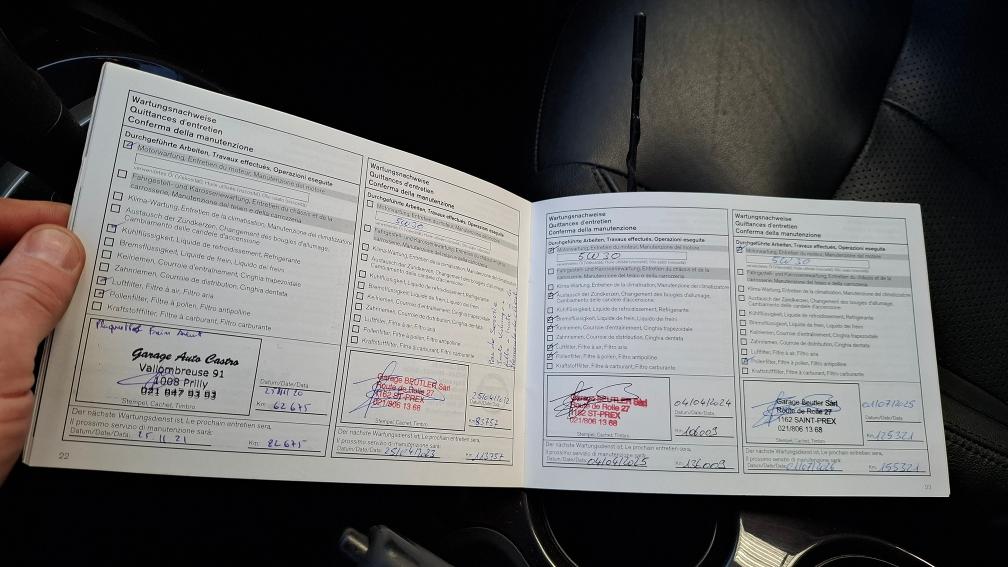 Wartungsnachweise
Quittances d'entretien
Conferma della manutenzione
Durchgeführte Arbeiten, Travaux effectués, Operazioni eseguite
Motorwartung, Entretien du moteur, Manutenzione del motore
Fahrgestell- und Karosseriewartung, Entretien du châssis et de la
carrosserie, Manutenzione del telaio e della carrozzeria
Klima-Wartung, Entretien de la climatisation, Manutenzione del climatizzatore
Austausch der Zündkerzen, Changement des bougies d'allumage,
Cambiamento delle candele d'accensione
Kühlflüssigkeit, Liquide de refroidissement, Refrigerante
Bremsflüssigkeit, Liquide de frein, Liquido dei freni
Keilriemen, Courroie d'entraînement, Cinghia trapezoidale
Zahnriemen, Courroie de distribution, Cinghia dentata
Luftfilter, Filtre à air, Filtro aria
Pollenfilter, Filtre à pollen, Filtro antipolline
Kraftstofffilter, Filtre à carburant, Filtro carburante
Garage Auto Castro
Vallombreuse 91
1008 Prilly
021 647 93 93
Stempel, Cachet, Timbro
Datum/Date/Data
Km: 62675
Der nächste Wartungsdienst ist, Le prochain entretien sera,
Il prossimo servizio di manutenzione sarà:
Datum/Date/Data: 25 11 21 Km: 82675
22
Wartungsnachweise
Quittances d'entretien
Conferma della manutenzione
Durchgeführte Arbeiten, Travaux effectués, Operazioni eseguite
Motorwartung, Entretien du moteur, Manutenzione del motore
5W30
Fahrgestell- und Karosseriewartung, Entretien du châssis et de la
carrosserie, Manutenzione del telaio e della carrozzeria
Klima-Wartung, Entretien de la climatisation, Manutenzione del climatizzatore
Austausch der Zündkerzen, Changement des bougies d'allumage,
Cambiamento delle candele d'accensione
Kühlflüssigkeit, Liquide de refroidissement, Refrigerante
Bremsflüssigkeit, Liquide de frein, Liquido dei freni
Keilriemen, Courroie d'entraînement, Cinghia trapezoidale
Zahnriemen, Courroie de distribution, Cinghia dentata
Luftfilter, Filtre à air, Filtro aria
Pollenfilter, Filtre à pollen, Filtro antipolline
Kraftstofffilter, Filtre à carburant, Filtro carburante
Garage BEUTLER Sàrl
Route de Rolle 27
1162 ST-PREX
021/806 13 68
Stempel, Cachet, Timbro
Datum/Date/Data
Km: 83757
Der nächste Wartungsdienst ist, Le prochain entretien sera,
Il prossimo servizio di manutenzione sarà:
Datum/Date/Data: 25/04/2023 Km: 113757
Wartungsnachweise
Quittances d'entretien
Conferma della manutenzione
Durchgeführte Arbeiten, Travaux effectués, Operazioni eseguite
Motorwartung, Entretien du moteur, Manutenzione del motore
5W30
Fahrgestell- und Karosseriewartung, Entretien du châssis et de la
carrosserie, Manutenzione del telaio e della carrozzeria
Klima-Wartung, Entretien de la climatisation, Manutenzione del climatizzatore
Austausch der Zündkerzen, Changement des bougies d'allumage,
Cambiamento delle candele d'accensione
Kühlflüssigkeit, Liquide de refroidissement, Refrigerante
Bremsflüssigkeit, Liquide de frein, Liquido dei freni
Keilriemen, Courroie d'entraînement, Cinghia trapezoidale
Zahnriemen, Courroie de distribution, Cinghia dentata
Luftfilter, Filtre à air, Filtro aria
Pollenfilter, Filtre à pollen, Filtro antipolline
Kraftstofffilter, Filtre à carburant, Filtro carburante
Garage BEUTLER Sàrl
Route de Rolle 27
1162 ST-PREX
021/806 13 68
Stempel, Cachet, Timbro
04/04/2024
Datum/Date/Data
Km: 106003
Der nächste Wartungsdienst ist, Le prochain entretien sera,
Il prossimo servizio di manutenzione sarà:
Datum/Date/Data: 04/04/2025 Km: 136003
Wartungsnachweise
Quittances d'entretien
Conferma della manutenzione
Durchgeführte Arbeiten, Travaux effectués, Operazioni eseguite
Motorwartung, Entretien du moteur, Manutenzione del motore
5W30
Fahrgestell- und Karosseriewartung, Entretien du châssis et de la
carrosserie, Manutenzione del telaio e della carrozzeria
Klima-Wartung, Entretien de la climatisation, Manutenzione del climatizzatore
Austausch der Zündkerzen, Changement des bougies d'allumage,
Cambiamento delle candele d'accensione
Kühlflüssigkeit, Liquide de refroidissement, Refrigerante
Bremsflüssigkeit, Liquide de frein, Liquido dei freni
Keilriemen, Courroie d'entraînement, Cinghia trapezoidale
Zahnriemen, Courroie de distribution, Cinghia dentata
Luftfilter, Filtre à air, Filtro aria
Pollenfilter, Filtre à pollen, Filtro antipolline
Kraftstofffilter, Filtre à carburant, Filtro carburante
Garage Beutler Sàrl
Route de Rolle 27
1162 SAINT-PREX
021/806 13 68
Stempel, Cachet, Timbro
01/07/2025
Datum/Date/Data
Km: 125321
Der nächste Wartungsdienst ist, Le prochain entretien sera,
Il prossimo servizio di manutenzione sarà:
Datum/Date/Data: 01/07/2026 Km: 155321
23